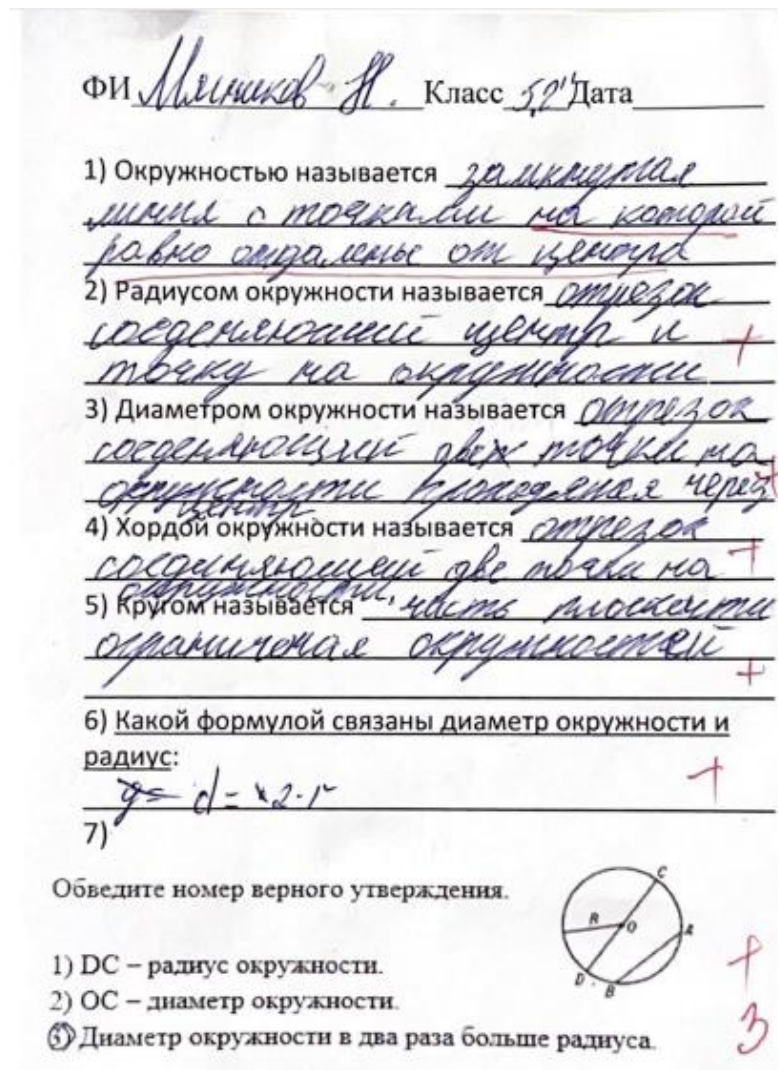 ФИ Мягиков Н. Класс 5,2" Дата
1) Окружностью называется замкнутая
линия с точками на которой
равно отдалены от центра
2) Радиусом окружности называется отрезок
соеденяюший центр и
точку на окружности
3) Диаметром окружности называется отрезок
соеденяющий двех точки на
окружности проходяная через
центр.
4) Хордой окружности называется отрезок
соединяюший две точки на
окружности.
5) Кругом называется часть плоскости
ограниченая окружностей
6) Какой формулой связаны диаметр окружности и
радиус:
d = 2·r
7)
Обведите номер верного утверждения.
C
R O A
D B
1) DC – радиус окружности.
2) ОС – диаметр окружности.
3) Диаметр окружности в два раза больше радиуса.
3